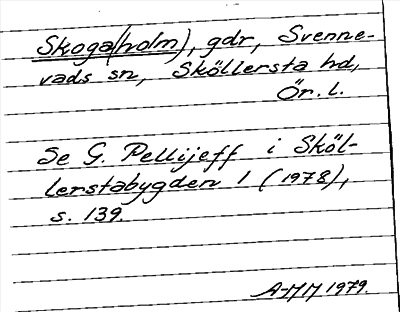 Skoga(holm), gdr, Svenne-
vads sn, Sköllersta hd,
Ör. l.
Se G. Pellijeff i Sköl-
lerstabygden 1 (1978),
s. 139.
A-MM 1979.